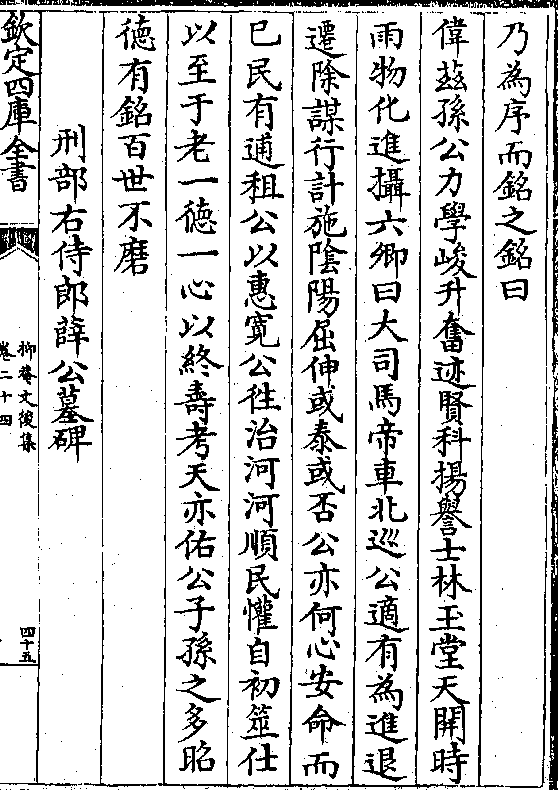 乃為序而銘之銘曰
偉茲孫公力學峻升奮迹賢科揚譽士林玉堂天開時
雨物化進攝六卿曰大司馬帝車北巡公適有為進退
遷除謀行計施陰陽屈伸或泰或否公亦何心安命而
已民有逋租公以惠寛公徃治河河順民懽自初筮仕
以至于老一徳一心以終壽考天亦佑公子孫之多昭
徳有銘百世不磨
刑部右侍郎薛公墓碑
欽定四庫全書
抑菴文後集
卷二十四
四十五